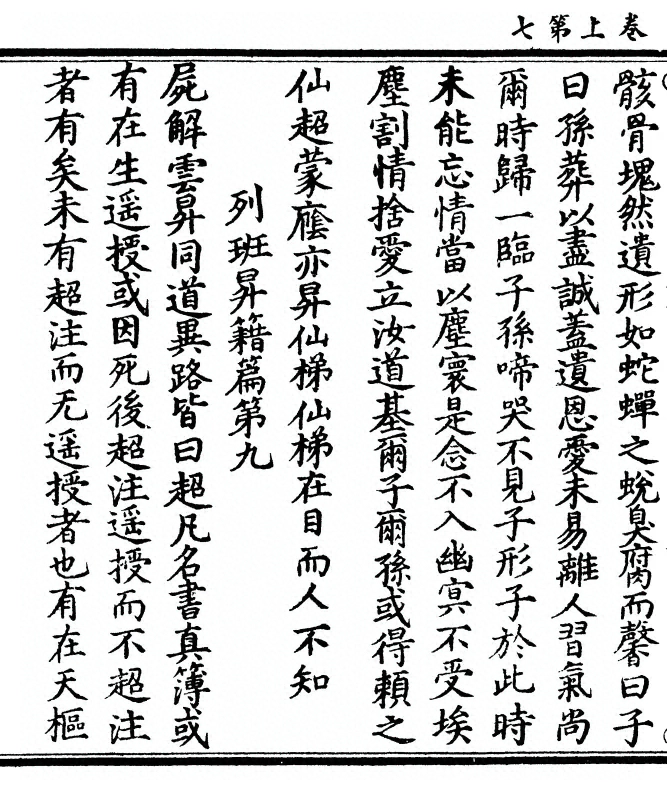 卷上第七
骸骨塊然遺形如蛇蟬之蛻臭腐而馨曰子
曰孫葬以盡誠蓋遺恩愛未易離人習氣尚
爾時歸一臨子孫啼哭不見子形子於此時
未能忘情當以塵寰是念不入幽㝠不受埃
塵割情捨愛立汝道基爾子爾孫或得賴之
仙超蒙廕亦昇仙梯仙梯在目而人不知
列班昇籍篇第九
屍解雲昇同道異路皆曰超凡名書真簿或
有在生遥授或因死後超注遥授而不超注
者有矣未有超注而无遥授者也有在天樞